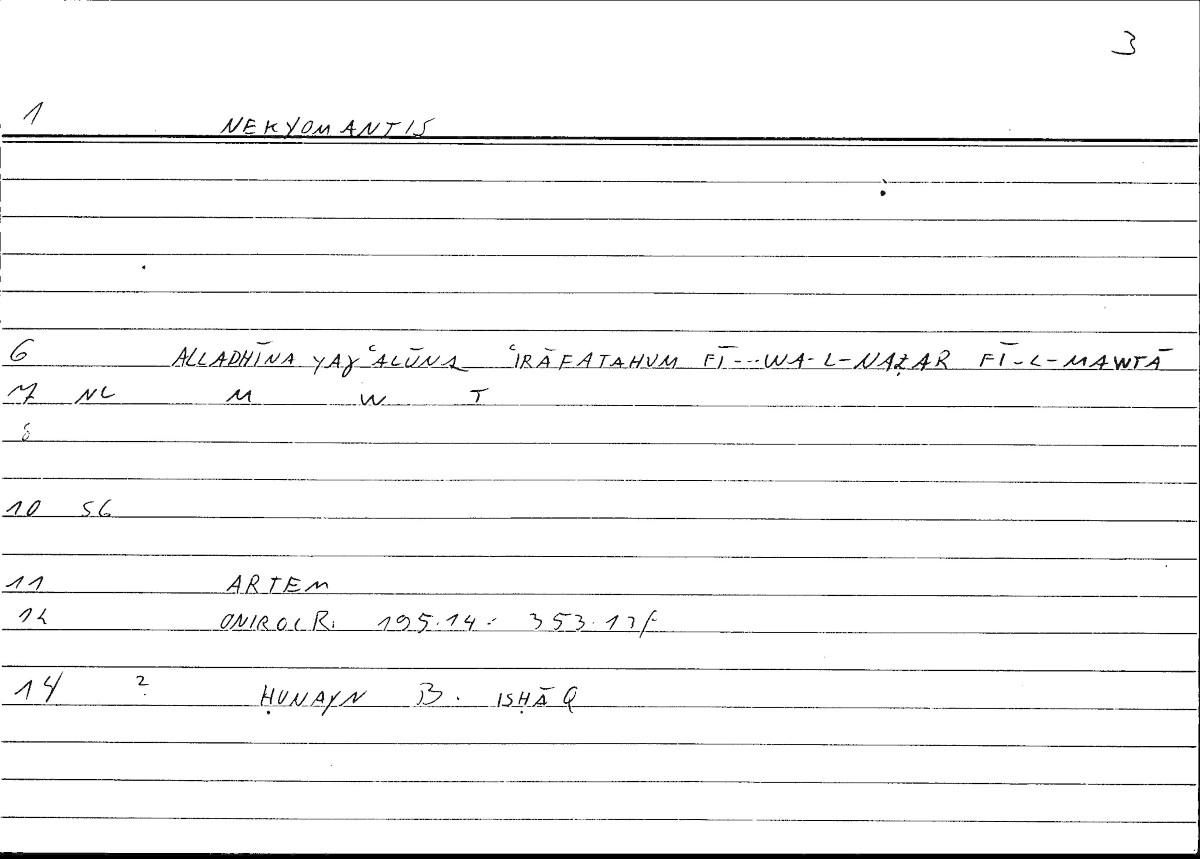 3
1 NEKYOMANTIS
6 ALLADHĪNA YAJʿALŪNA ʿIRĀFATAHUM FĪ---WA-L-NAẒAR FĪ-L-MAWTĀ
7 NL M W T
8
10 SG
11 ARTEM
12 ONIROCR. 195.14 = 353.13f
14 2 ḤUNAYN B. ISḤĀQ